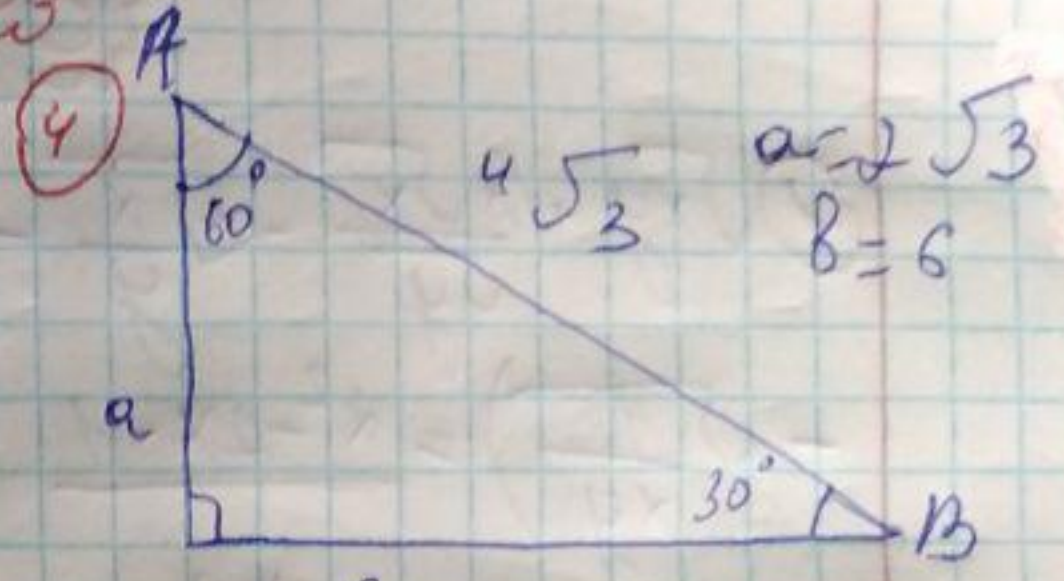 4
A
60°
4√3
a = 2√3
b = 6
a
30°
B